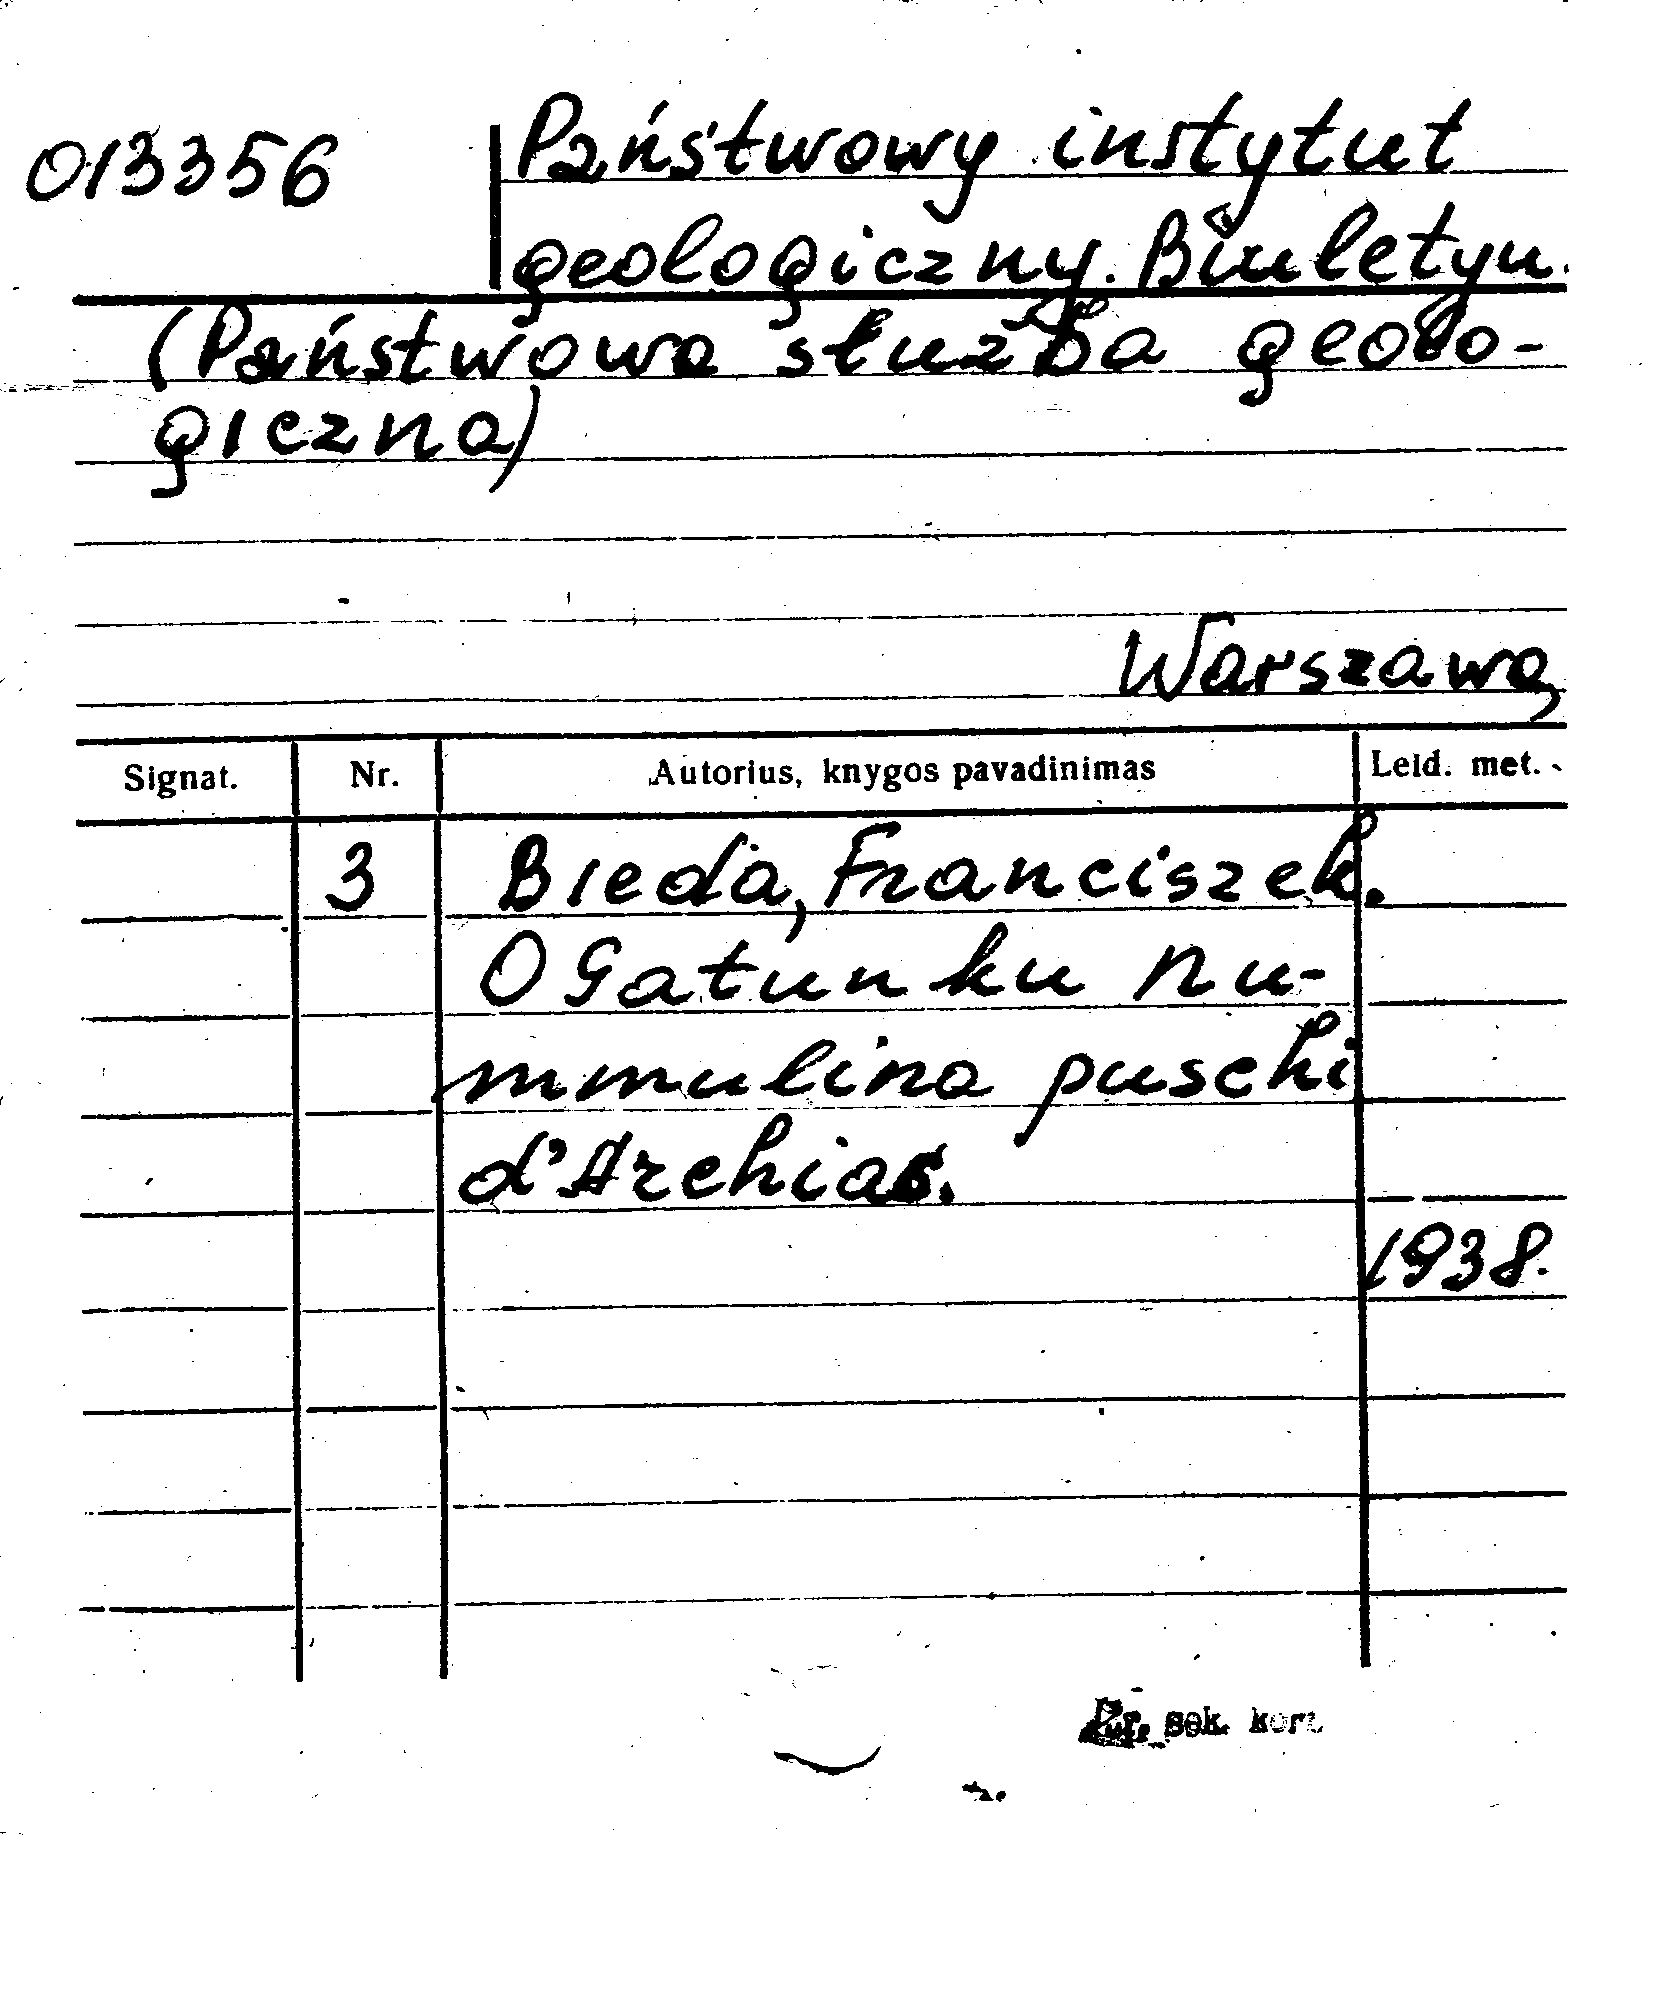 013356 Państwowy instytut
geologiczny. Biuletyn.
(Państwowa służba geolo-
giczna)
Warszawa,
Signat. Nr. Autorius, knygos pavadinimas Leid. met.
3 Bieda, Franciszek.
O Gatunku nu-
mmulina puschi
d'Archiac.
1938.
sek. kort.